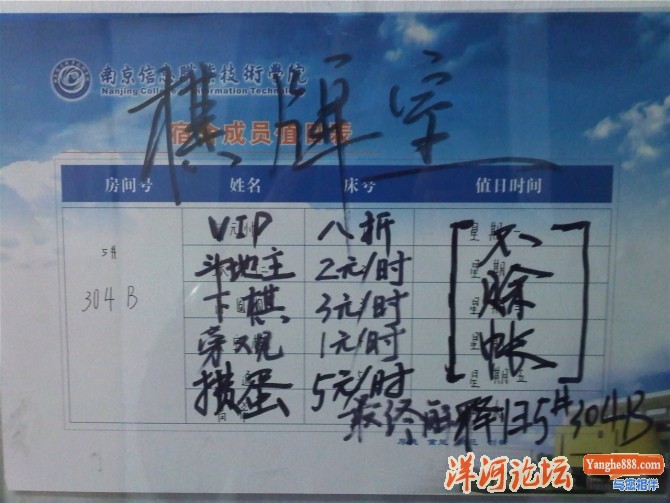 南京信息职业技術學院
Nanjing College of Information Technology
棋牌室
宿舍成员值日表
房间号 姓名 床号 值日时间
VIP 八折
斗地主 2元/时
5# 304B
下棋 3元/时
旁观 1元/时
掼蛋 5元/时
[不赊帐]
最终解释归5#304B
洋河论坛
Yanghe888.com